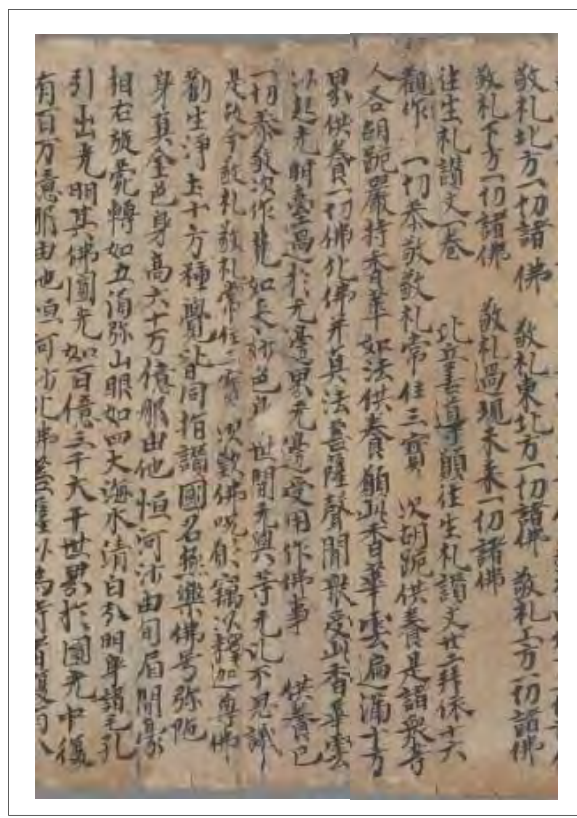 敬礼北方一切諸佛 敬礼東北方一切諸佛 敬礼上方一切諸佛
敬礼下方一切諸佛 敬礼過現未来一切諸佛
往生礼讃文一卷 比丘善導願往生礼讃文廿二拜依十六
觀作 一切恭敬敬礼常住三寳 次胡跪供養是諸衆等
人各胡跪嚴持香華如法供養願此香華雲遍滿十方
界供養一切佛化佛并真法菩薩聲聞衆受此香華雲
以起光明臺過於无邊界无邊受用作佛事 供養已
一切恭敬次作 如来妙色身世間无與等无比不思議
是故今敬礼敬礼常住三寳 次歎佛呪願竊以釋迦尊佛
勸生淨土十方種覺皆同指讃國名極樂佛号弥陁
身真金色身高六十万億那由他恒河沙由旬眉間豪
相右旋宛轉如五湏弥山眼如四大海水清白分明身諸毛孔
引出光明其佛圓光如百億三千大千世界於圓光中復
有百万億那由他恒河沙化佛菩薩以為侍者